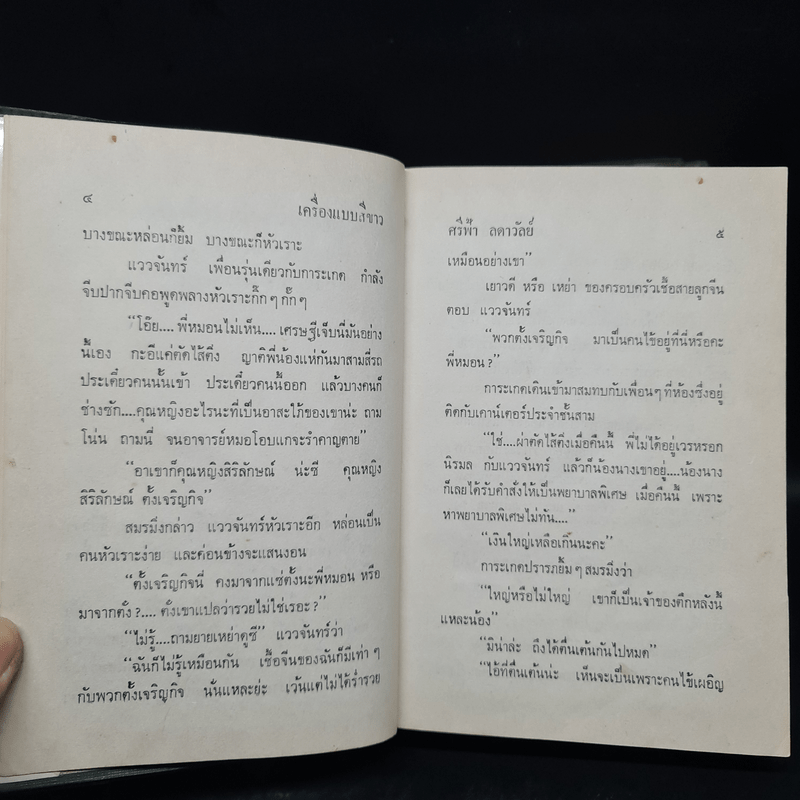 ๔
เครื่องแบบสีขาว
บางขณะหล่อนก็ยิ้ม บางขณะก็หัวเราะ
แววจันทร์ เพื่อนรุ่นเดียวกับการะเกด กำลัง
จีบปากจีบคอพูดพลางหัวเราะกิ๊กๆ กั๊กๆ
“โอ๊ย.... พี่หมอนไม่เห็น.... เศรษฐีเจ็บนี่มันอย่าง
นี้เอง กะอีแค่ตัดไส้ติ่ง ญาติพี่น้องแห่กันมาสามสี่รถ
ประเดี๋ยวคนนั้นเข้า ประเดี๋ยวคนนี้ออก แล้วบางคนก็
ช่างซัก....คุณหญิงอะไรนะที่เป็นอาสะใภ้ของเขาน่ะ ถาม
โน่น ถามนี่ จนอาจารย์หมอโอบแกจะรำคาญตาย”
“อาเขาก็คุณหญิงสิริลักษณ์ น่ะซี คุณหญิง
สิริลักษณ์ ตั้งเจริญกิจ”
สมรมิ่งกล่าว แววจันทร์หัวเราะอีก หล่อนเป็น
คนหัวเราะง่าย และค่อนข้างจะแสนงอน
“ตั้งเจริญกิจนี่ คงมาจากแซ่ตั้งนะพี่หมอน หรือ
มาจากตั๋ง ?.... ตั๋งเขาแปลว่ารวยไม่ใช่เรอะ ?”
“ไม่รู้....ถามยายเหย่าดูซี” แววจันทร์ว่า
“ฉันก็ไม่รู้เหมือนกัน เชื้อจีนของฉันก็มีเท่า ๆ
กับพวกตั้งเจริญกิจ นั่นแหละย่ะ เว้นแต่ไม่ได้ร่ำรวย
ศรีฟ้า ลดาวัลย์
๕
เหมือนอย่างเขา”
เยาวดี หรือ เหย่า ของครอบครัวเชื้อสายลูกจีน
ตอบ แววจันทร์
“พวกตั้งเจริญกิจ มาเป็นคนไข้อยู่ที่นี่หรือคะ
พี่หมอน ?”
การะเกดเดินเข้ามาสมทบกับเพื่อนๆ ที่ห้องซึ่งอยู่
ติดกับเคาน์เตอร์ประจำชั้นสาม
“ใช่....ผ่าตัดไส้ติ่งเมื่อคืนนี้ พี่ไม่ได้อยู่เวรหรอก
นิรมล กับแววจันทร์ แล้วก็น้องนางเขาอยู่....น้องนาง
ก็เลยได้รับคำสั่งให้เป็นพยาบาลพิเศษ เมื่อคืนนี้ เพราะ
หาพยาบาลพิเศษไม่ทัน....”
“เงินใหญ่เหลือเกิ๊นนะคะ”
การะเกดปรารภยิ้มๆ สมรมิ่งว่า
“ใหญ่หรือไม่ใหญ่ เขาก็เป็นเจ้าของตึกหลังนี้
แหละน้อง”
“มิน่าล่ะ ถึงได้ตื่นเต้นกันไปหมด”
“ไอ้ที่ตื่นเต้นน่ะ เห็นจะเป็นเพราะคนไข้เผอิญ